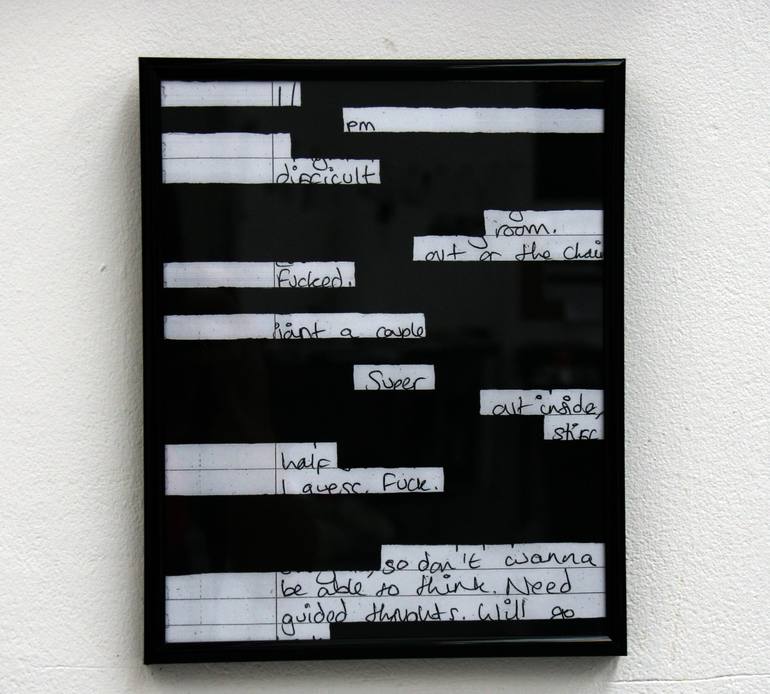 11
pm
difficult
room.
out of the chai
Fucked.
a couple
Super
out inside,
stiff
half
I guess. Fuck.
, so don't wanna
be able to think. Need
guided thoughts. Will go